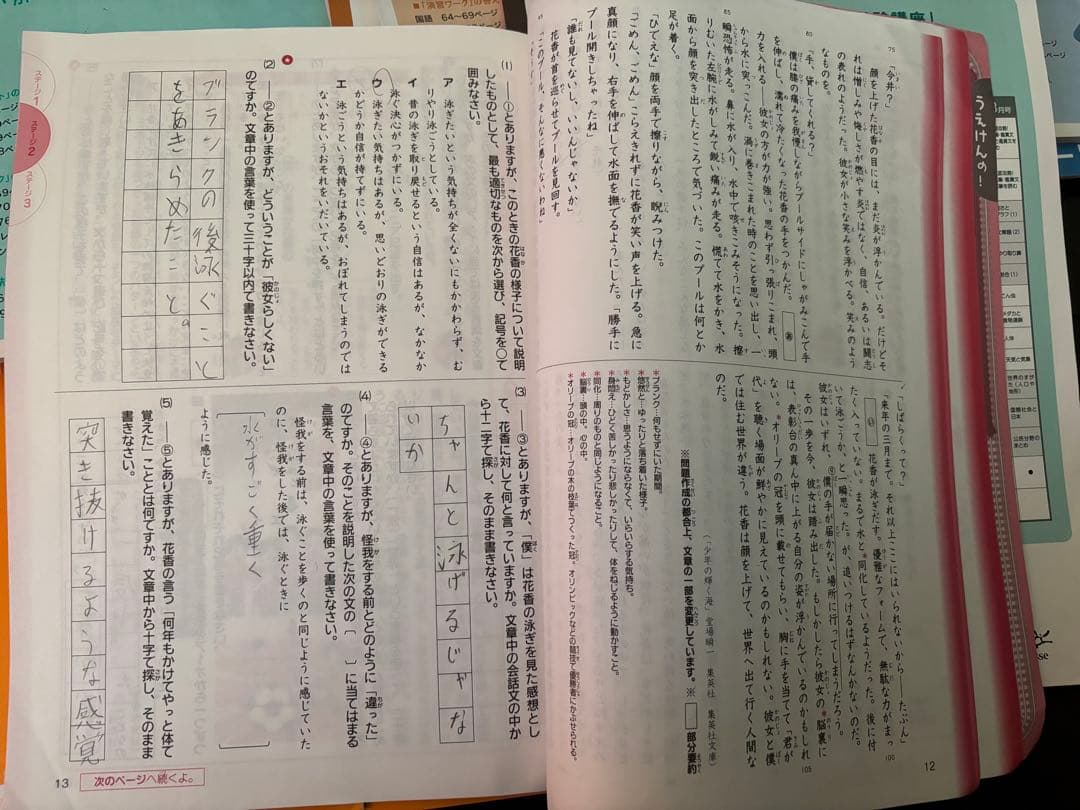 「今井？」
顔を上げた花香の目には、まだ炎が浮かんでいる。だけどそ
れは憎しみや悔しさが燃やす炎ではなく、自信、あるいは闘志
の表れのようだった。彼女が小さな笑みを浮かべる。笑みのよう
なものを。
「手、貸してくれる？」
僕は膝の痛みを我慢しながらプールサイドにしゃがみこんで手
を伸ばし、濡れて冷たくなった花香の手をつかんだ。
力を入れる――彼女の方が力が強い。思わず引っ張りこまれ、頭
から水に突っこんだ。渦に巻きこまれた時のことを思い出し、一
瞬恐怖が走る。鼻に水が入り、水中で咳きこみそうになった。擦
りむいた左腕に水がしみて鋭い痛みが走る。慌てて水をかき、水
面から顔を突き出したところで気づいた。このプールは何とか
足が着く。
「ひでえな」顔を両手で擦りながら、睨みつけた。
「ごめん、ごめん」こらえきれずに花香が笑い声を上げる。急に
真顔になり、右手を伸ばして水面を撫でるようにした。「勝手に
プール開きしちゃったね」
「誰も見てないし、いいんじゃないか」
花香が首を巡らせてプールを見回す。
「このプール、そんなに悪くないわね」
「しばらくって？」
「来年の三月まで。それ以上ここにはいられないから――たぶん」
い 花香が泳ぎだす。優雅なフォームで、無駄な力がまっ
たく入っていない。まるで水と*同化しているようだった。後に付
いて泳ごうか、と一瞬思った。が、追いつけるはずなんかないのだ。
彼女はいずれ、④僕の手が届かない場所に行ってしまうだろう。
その一歩を今、彼女は踏み出した。もしかしたら彼女の*脳裏に
は、表彰台の真ん中に上がる自分の姿が浮かんでいるのかもしれ
ない。*オリーブの冠を頭に載せてもらい、胸に手を当てて「君が
代」を聴く場面が鮮やかに見えているのかもしれない。彼女と僕
では住む世界が違う。花香は顔を上げて、世界へ出て行く人間な
のだ。
（「少年の輝く海」堂場瞬一 集英社 集英社文庫）
※問題作成の都合上、文章の一部を変更しています。※ 部分要約
*ブランク…何もせずにいた期間。
*悠然と…ゆったりと落ち着いた様子。
*もどかしさ…思うようにならなくて、いらいらする気持ち。
*身悶え…ひどく苦しかったり悲しかったりして、体をねじるように動かすこと。
*同化…周りのものと同じようになること。
*脳裏…頭の中。心の中。
*オリーブの冠…オリーブの木の枝葉でつくった冠。オリンピックなどの競技で優勝者にかぶせられる。
12
(1) ――①とありますが、このときの花香の様子について説明
したものとして、最も適切なものを次から選び、記号を〇で
囲みなさい。
ア 泳ぎたいという気持ちが全くないにもかかわらず、む
りやり泳ごうとしている。
イ 昔の泳ぎを取り戻せるという自信はあるが、なかなか
泳ぐ決心がつかずにいる。
ウ 泳ぎたい気持ちはあるが、思いどおりの泳ぎができる
かどうか自信が持てずにいる。
エ 泳ごうという気持ちはあるが、おぼれてしまうのでは
ないかというおそれをいだいている。
(2) ――②とありますが、どういうことが「彼女らしくない」
のですか。文章中の言葉を使って三十字以内で書きなさい。
ブランクの後泳ぐこと
をあきらめたこと。
(3) ――③とありますが、「僕」は花香の泳ぎを見た感想とし
て、花香に対して何と言っていますか。文章中の会話文の中か
ら十二字で探し、そのまま書きなさい。
ちゃんと泳げるじゃな
いか
(4) ――④とありますが、怪我をする前とどのように「違った」
のですか。そのことを説明した次の文の〔 〕に当てはまる
言葉を、文章中の言葉を使って書きなさい。
怪我をする前は、泳ぐことを歩くのと同じように感じていた
のに、怪我をした後では、泳ぐときに
〔水がすごく重く〕
ように感じた。
(5) ――⑤とありますが、花香の言う「何年もかけてやっと体で
覚えた」こととは何ですか。文章中から十字で探し、そのまま
書きなさい。
突き抜けるような感覚
13
次のページへ続くよ。
ステージ1
ステージ2
ステージ3
うえけんの！
国語 64〜69ページ